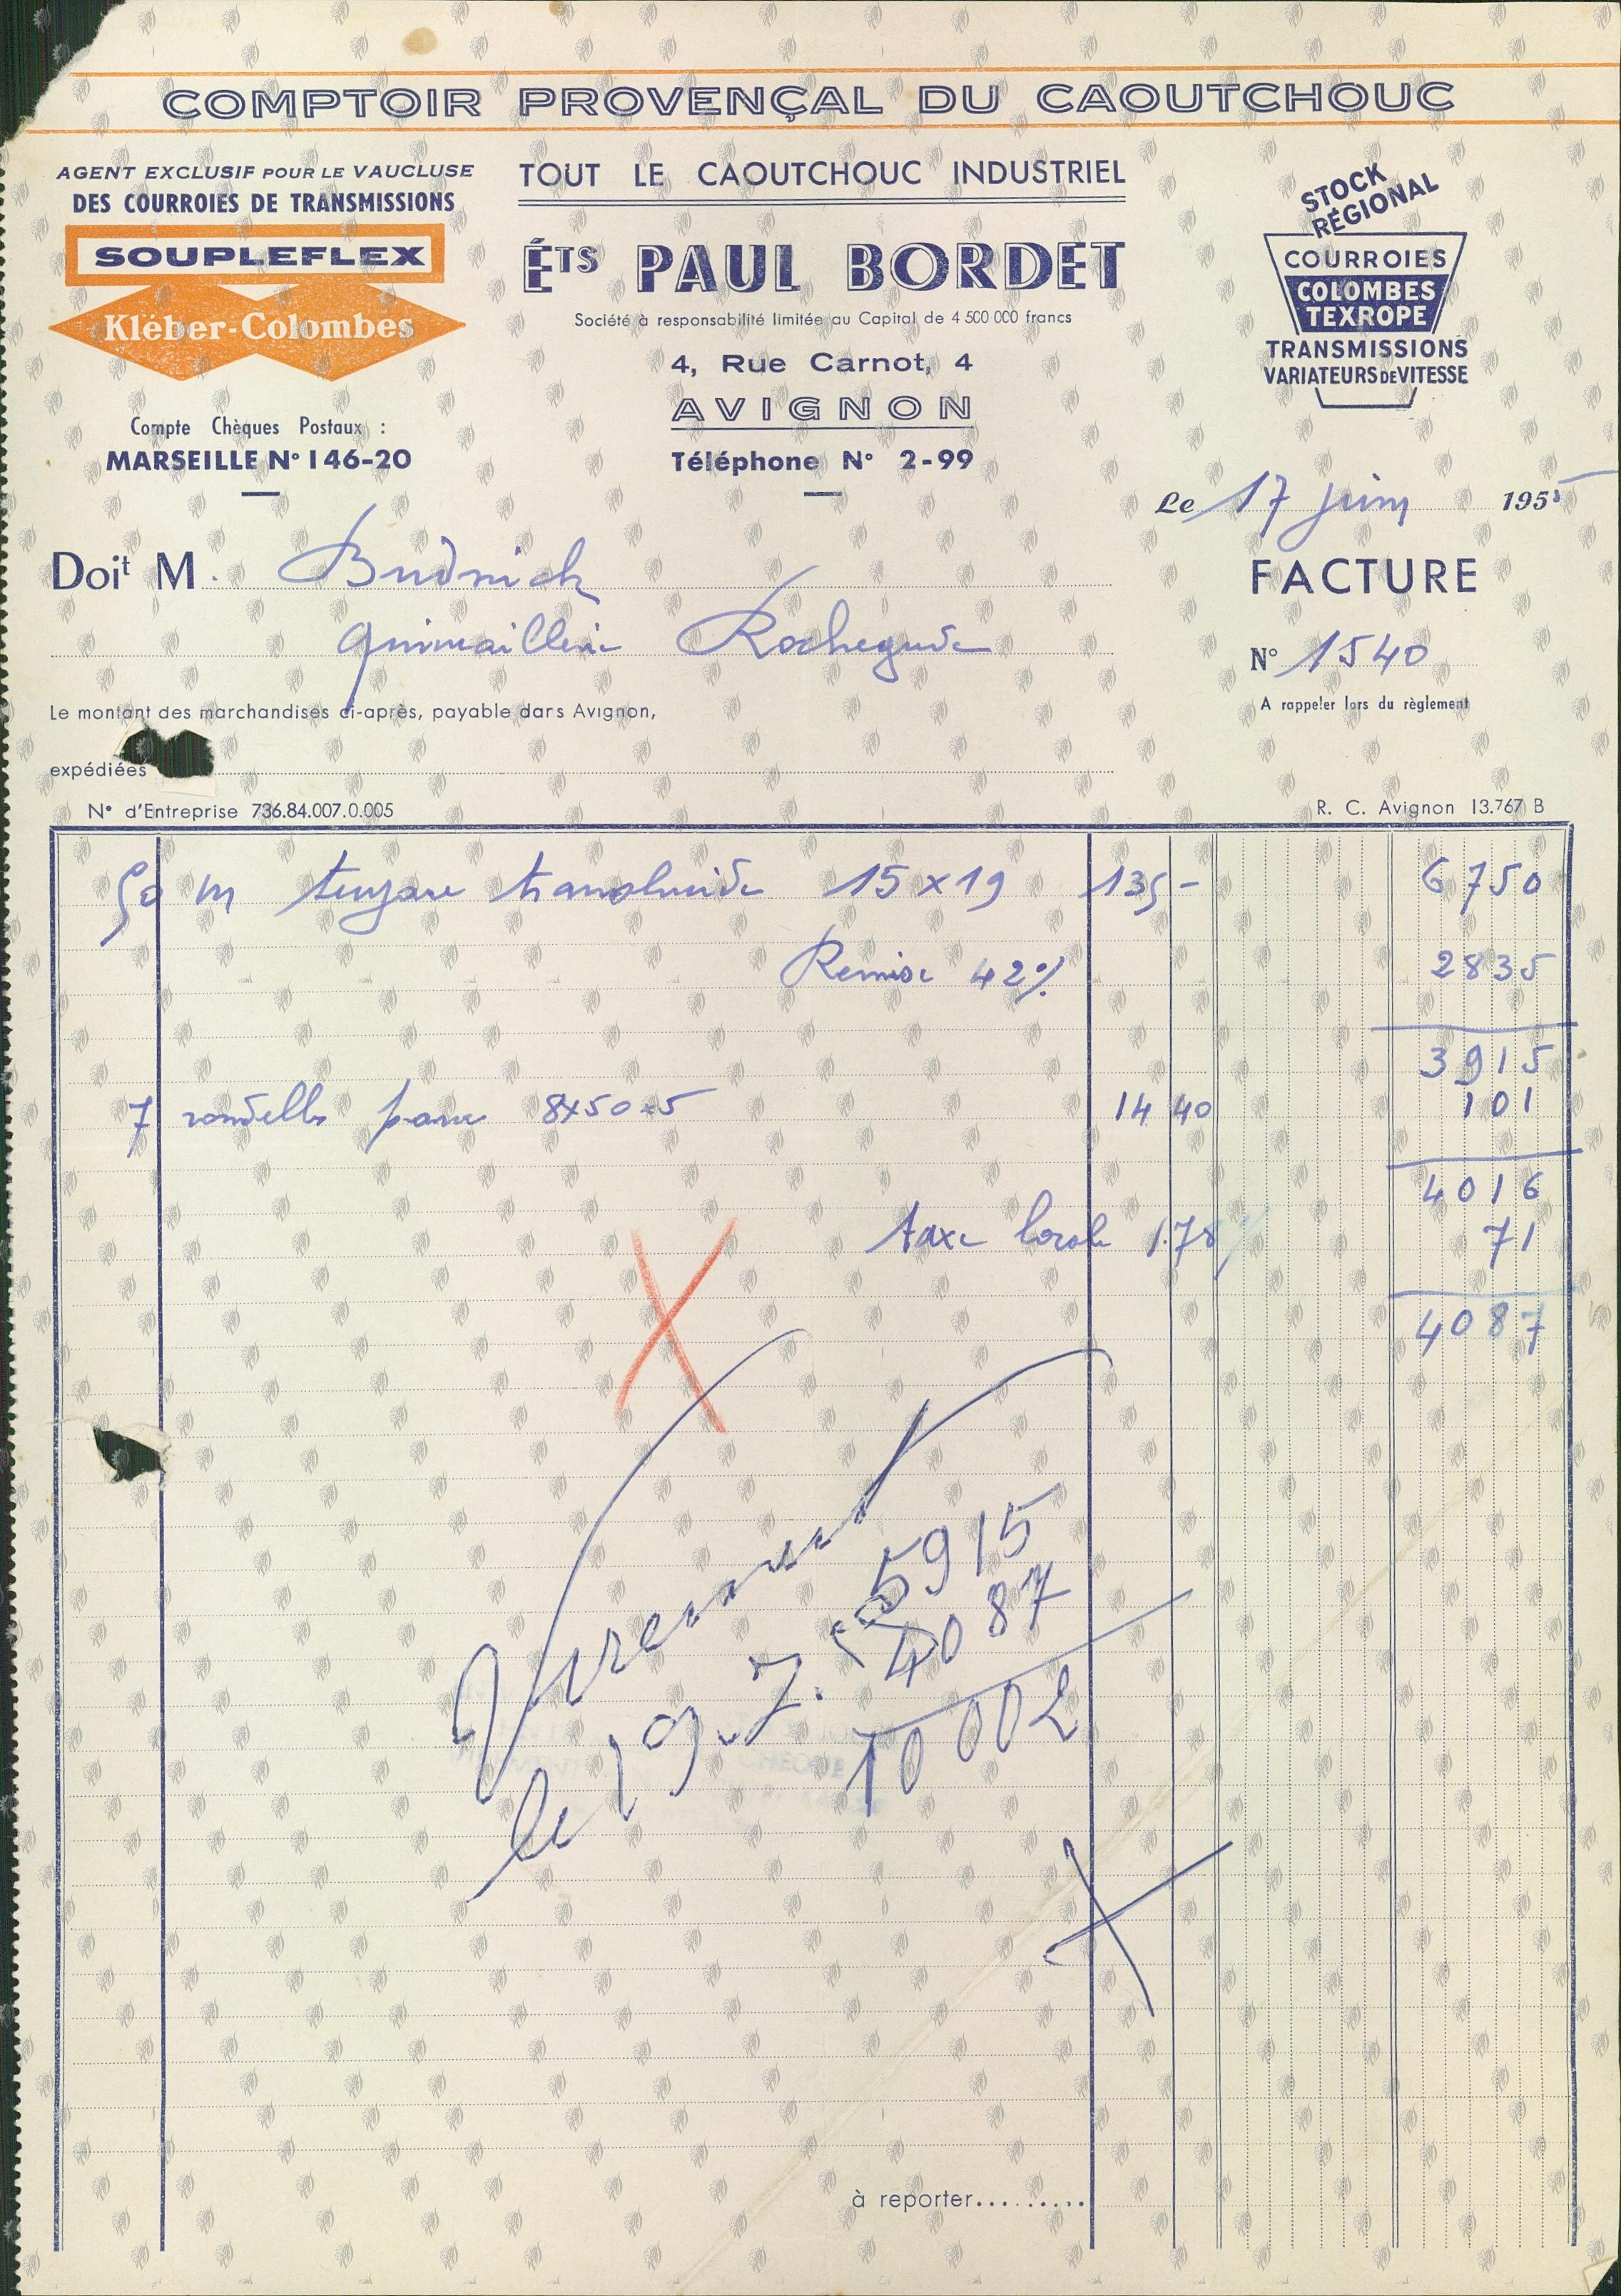 COMPTOIR PROVENÇAL DU CAOUTCHOUC
AGENT EXCLUSIF POUR LE VAUCLUSE
DES COURROIES DE TRANSMISSIONS
SOUPLEFLEX
Kléber-Colombes
Compte Chèques Postaux :
MARSEILLE N° 146-20
TOUT LE CAOUTCHOUC INDUSTRIEL
ÉTS PAUL BORDET
Société à responsabilité limitée au Capital de 4 500 000 francs
4, Rue Carnot, 4
AVIGNON
Téléphone N° 2-99
STOCK
RÉGIONAL
COURROIES
COLOMBES
TEXROPE
TRANSMISSIONS
VARIATEURS DE VITESSE
Le 17 juin 1955
Doit M. Budnick
FACTURE
quincaillerie Rochegude
N° 1540
Le montant des marchandises ci-après, payable dans Avignon,
A rappeler lors du règlement
expédiées
N° d'Entreprise 736.84.007.0.005
R. C. Avignon 13.767 B
50 m tuyau translucide 15 x 19 135 - 6750
Remise 42% 2835
3915
7 rondelles 8x50x5 14 40 101
4016
taxe locale 1.78 71
4087
Virement
le 19.7.55
5915
4087
10 002
à reporter..........